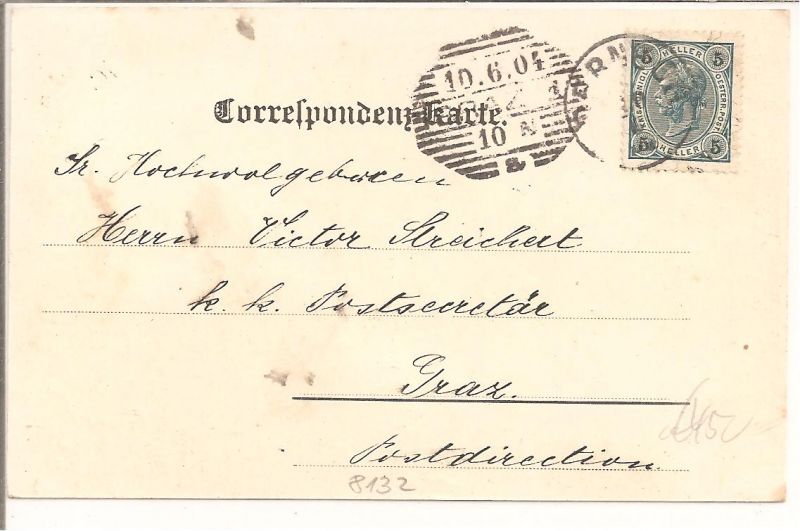 Correspondenz-Karte.
10.6.04
GRAZ 1
10
5 HELLER 5
OESTERR. POST
5 HELLER 5
Sr. Hochwolgeboren
Herrn Victor Streichert
k. k. Postsecretär
Graz.
Postdirection
8132